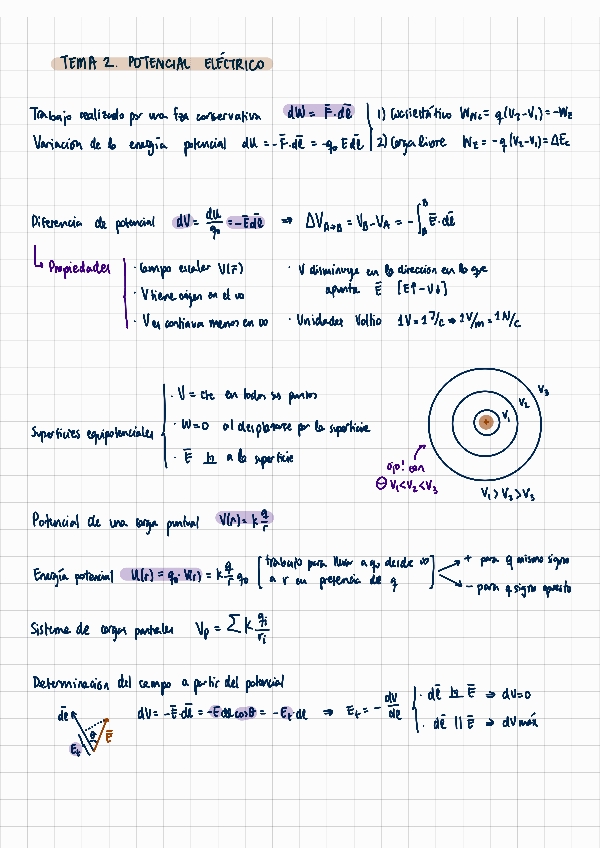 TEMA 2. POTENCIAL ELÉCTRICO
Trabajo realizado por una fza conservativa dW = F̄·dl̄ 1) Cuasiestático W_Nc = q(V₂-V₁) = -W_E
Variación de la energía potencial dU = -F̄·dl̄ = -q₀ Ē dl̄ 2) Carga libre W_E = -q(V₂-V₁) = ΔEc
Diferencia de potencial dV = dU/q₀ = -Ē·dl̄ ⇒ ΔV_A→B = V_B - V_A = -∫ Ē·dl̄
Propiedades · Campo escalar V(r̄) · V disminuye en la dirección en la que
· V tiene origen en el ∞ apunta Ē [E↑-V↓]
· V es continua menos en ∞ · Unidades Voltio 1V = 1J/C ⇒ 1V/m = 1N/C
· V = cte en todos sus puntos
Superficies equipotenciales · W=0 al desplazarse por la superficie
· Ē ⊥ a la superficie
+ V₁ V₂ V₃
ojo! con
⊖ V₁<V₂<V₃
V₁>V₂>V₃
Potencial de una carga puntual V(r) = k q/r
Energía potencial U(r) = q₀·V(r) = k q/r q₀ [trabajo para llevar a q₀ desde ∞ a r en presencia de q] + para q mismo signo
- para q signo opuesto
Sistema de cargas puntuales Vp = ∑ k qᵢ/rᵢ
Determinación del campo a partir del potencial
dl̄ θ Ē Eₜ dV = -Ē·dl̄ = -E dl cosθ = -Eₜ·dl ⇒ Eₜ = - dV/dl · dl̄ ⊥ Ē ⇒ dV=0
· dl̄ || Ē ⇒ dV máx